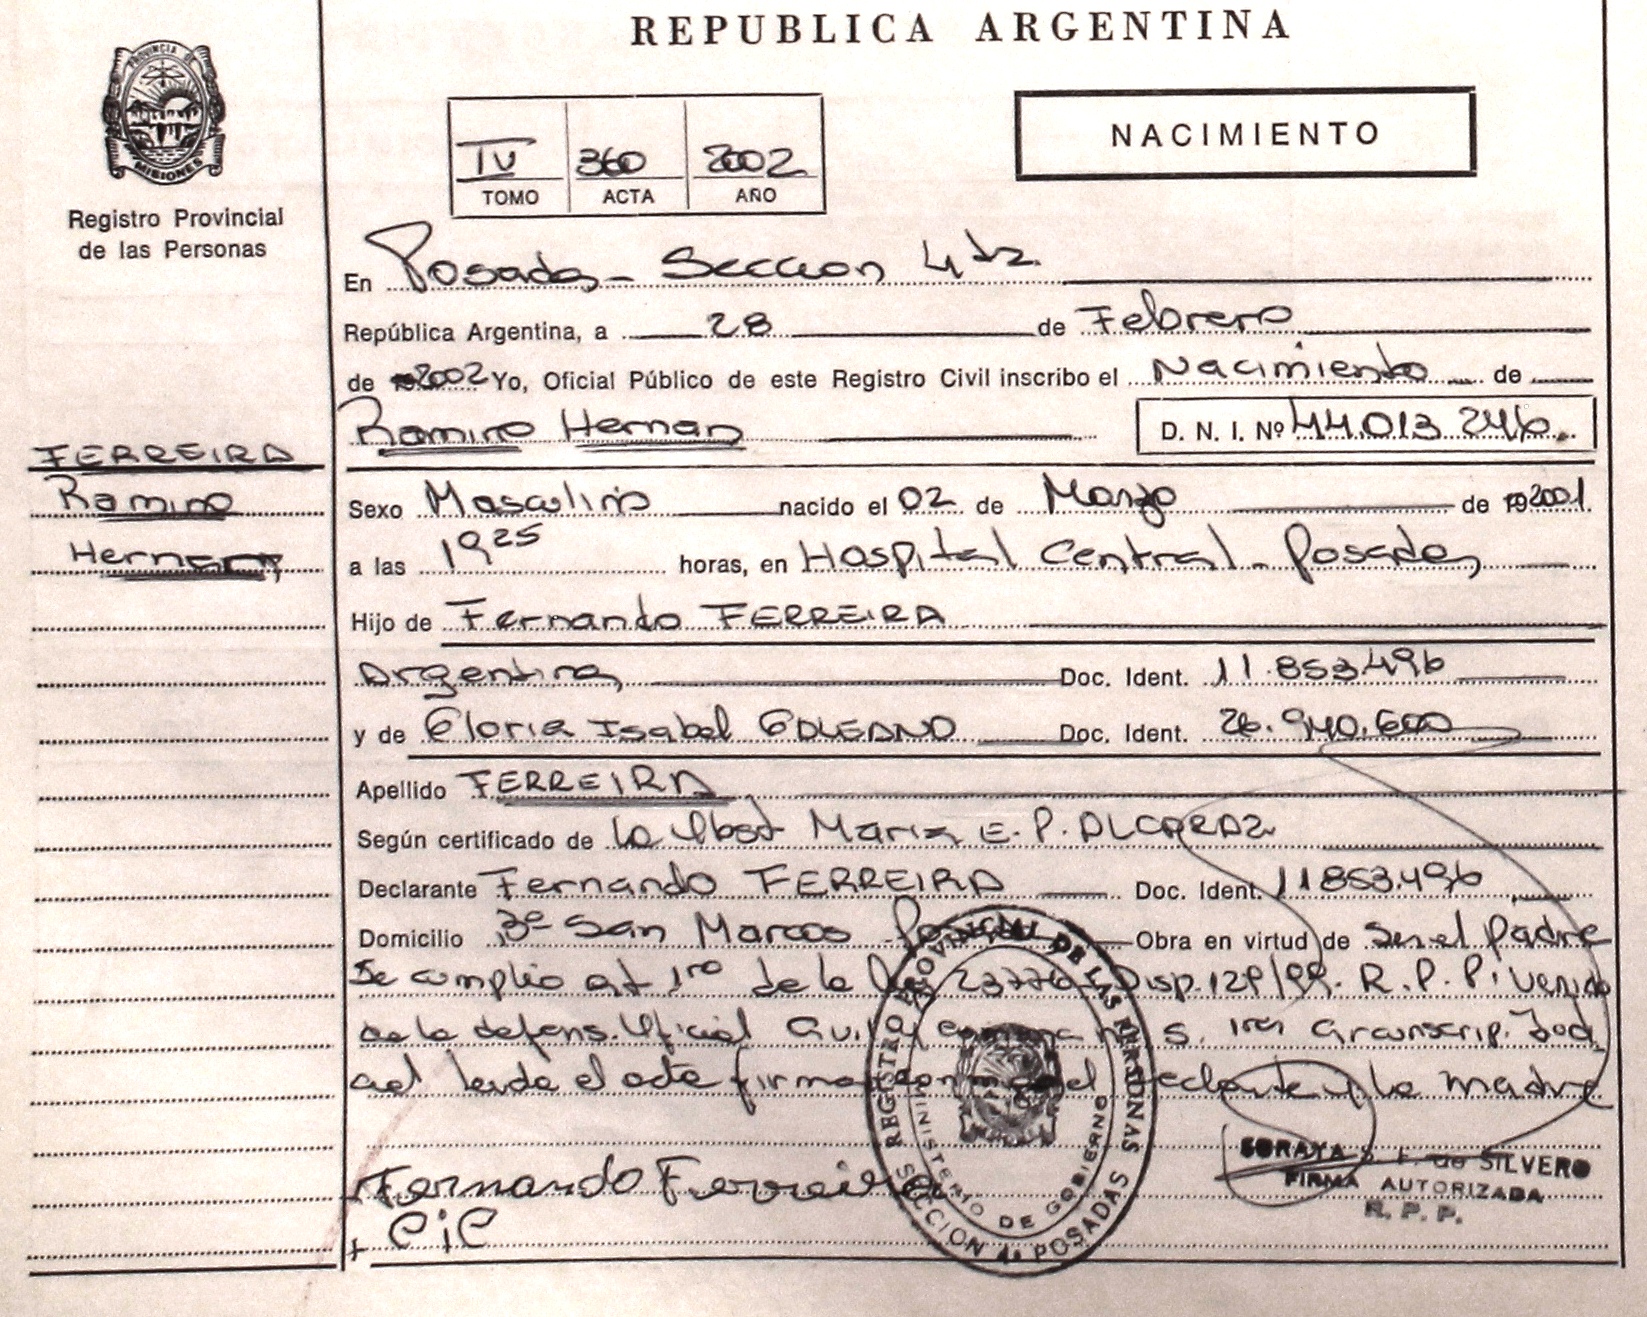 REPUBLICA ARGENTINA
PROVINCIA DE
MISIONES
Registro Provincial
de las Personas
IV 360 2002
TOMO ACTA AÑO
NACIMIENTO
En Posadas - Seccion 4ta.
República Argentina, a 28 de Febrero
de 2002 Yo, Oficial Público de este Registro Civil inscribo el Nacimiento de
Ramiro Hernan D. N. I. Nº 44.013.246.
FERREIRA
Ramiro
Hernan
Sexo Masculino nacido el 02 de Marzo de 192001.
a las 19 25 horas, en Hospital Central - Posadas
Hijo de Fernando FERREIRA
Argentina Doc. Ident. 11.853.496
y de Gloria Isabel GOLEANO Doc. Ident. 26.940.600
Apellido FERREIRA
Según certificado de la Obst Maria E. P. ALCARAZ
Declarante Fernando FERREIRA Doc. Ident. 11853.496
Domicilio San Marcos Obra en virtud de Ser el padre
Se cumplio art 1ro de la 23776 Disp. 129/99. R. P. P.
de la defens. Oficial Civil y 1ra Circunscrip. Jud.
leida el acta firman el y la madre
Fernando Ferreira
+ CiC
REGISTRO PROVINCIAL DE LAS PERSONAS
MINISTERIO DE GOBIERNO
SECCION 4a POSADAS
SORAYA de SILVERO
FIRMA AUTORIZADA
R. P. P.